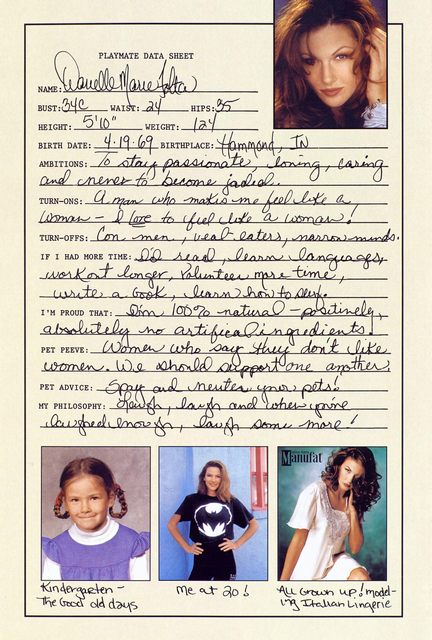 PLAYMATE DATA SHEET
NAME: Danelle Marie Folta
BUST: 34C WAIST: 24 HIPS: 35
HEIGHT: 5'10" WEIGHT: 124
BIRTH DATE: 4-19-69 BIRTHPLACE: Hammond, IN
AMBITIONS: To stay passionate, loving, caring
and never to become jaded.
TURN-ONS: A man who makes me feel like a
woman - I love to feel like a woman!
TURN-OFFS: Con men, veal-eaters, narrow minds.
IF I HAD MORE TIME: I'd read, learn languages,
work out longer, volunteer more time,
write a book, learn how to surf.
I'M PROUD THAT: I'm 100% natural - positively,
absolutely no artificial ingredients.
PET PEEVE: Women who say they don't like
women. We should support one another.
PET ADVICE: Spay and neuter your pets!
MY PHILOSOPHY: Laugh, laugh and when you've
laughed enough, laugh some more!
Manufat
Kindergarten -
The Good old days
Me at 20!
All Grown up! model-
ing Italian Lingerie